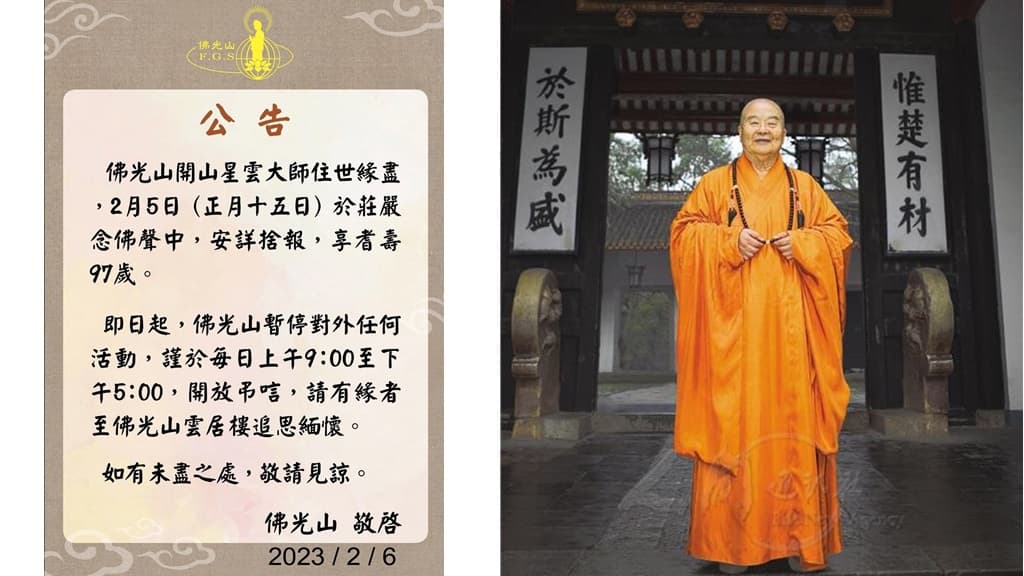 佛光山
F.G.S
公告
佛光山開山星雲大師住世緣盡
，2月5日（正月十五日）於莊嚴
念佛聲中，安詳捨報，享耆壽
97歲。
即日起，佛光山暫停對外任何
活動，謹於每日上午9:00至下
午5:00，開放弔唁，請有緣者
至佛光山雲居樓追思緬懷。
如有未盡之處，敬請見諒。
佛光山 敬啓
2023 / 2 / 6
於斯為盛
惟楚有材